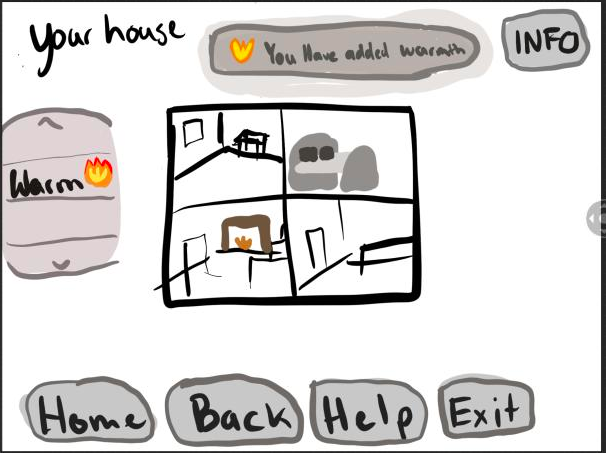 Your house
You Have added warmth
INFO
Warm
Home
Back
Help
Exit